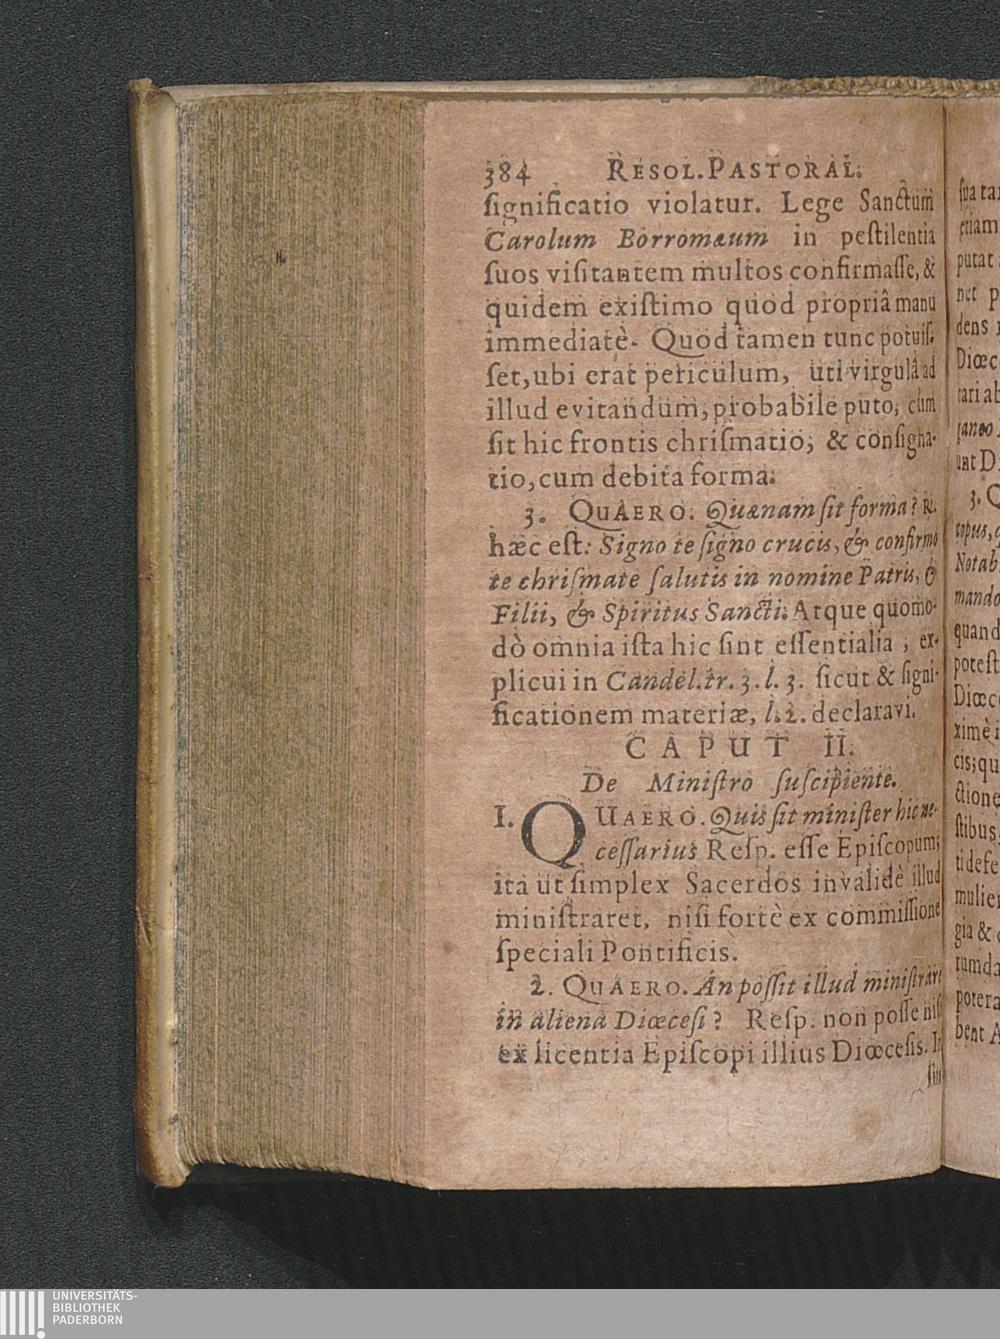 384 RESOL. PASTORAL.
ſignificatio violatur. Lege Sanctum
Carolum Borromæum in peſtilentia
ſuos viſitantem multos confirmaſſe, &
quidem exiſtimo quod propriâ manu
immediatè. Quod tamen tunc potuiſ-
ſet, ubi erat periculum, uti virgulâ ad
illud evitandum, probabile puto, cùm
ſit hic frontis chriſmatio, & conſigna-
tio, cum debita forma.
3. QUAERO. Quænam ſit forma? R.
hæc eſt: Signo te ſigno crucis, & confirmo
te chriſmate ſalutis in nomine Patris, &
Filii, & Spiritus Sancti. Atque quomo-
dò omnia iſta hic ſint eſſentialia, ex-
plicui in Candel. tr. 3. l. 3. ſicut & ſigni-
ficationem materiæ, l. 2. declaravi.
CAPUT II.
De Miniſtro ſuſcipiente.
1. QUAERO. Quis ſit miniſter hic ne-
ceſſarius Reſp. eſſe Epiſcopum;
ita ut ſimplex Sacerdos invalidè illud
miniſtraret, niſi fortè ex commiſſione
ſpeciali Pontificis.
2. QUAERO. An poſſit illud miniſtrare
in aliena Diœceſi? Reſp. non poſſe niſi
ex licentia Epiſcopi illius Diœceſis. In
ſua tax
etiam
putat
net p
dens
Diœc
tari ab
janeo
unt D
3. Q
copus,
Notab
mando
quand
poteſt
Diœce
ximè
cis; qu
ctione
ſtibus,
ti defe
mulier
gia &
tumda
potera
bent A
UNIVERSITÄTS-
BIBLIOTHEK
PADERBORN